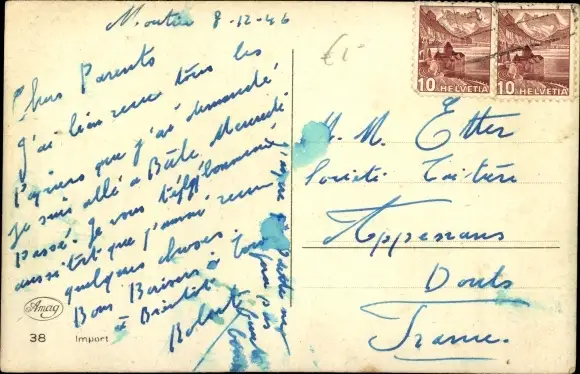 Moutier 8-12-46
Chers Parents
J'ai bien reçu tous les
papiers que j'ai demandé
Je suis allé a Bâle, Mercredi
passé. Je vous téléphonerai
aussitôt que j'aurai reçu
quelques choses.
Bons Baisers à tous
à Bientôt
Robert
€ 1-
10 HELVETIA
10 HELVETIA
M. M. Etter
Societé Laitière
Appenans
Doubs
France.
Amag
38 Import